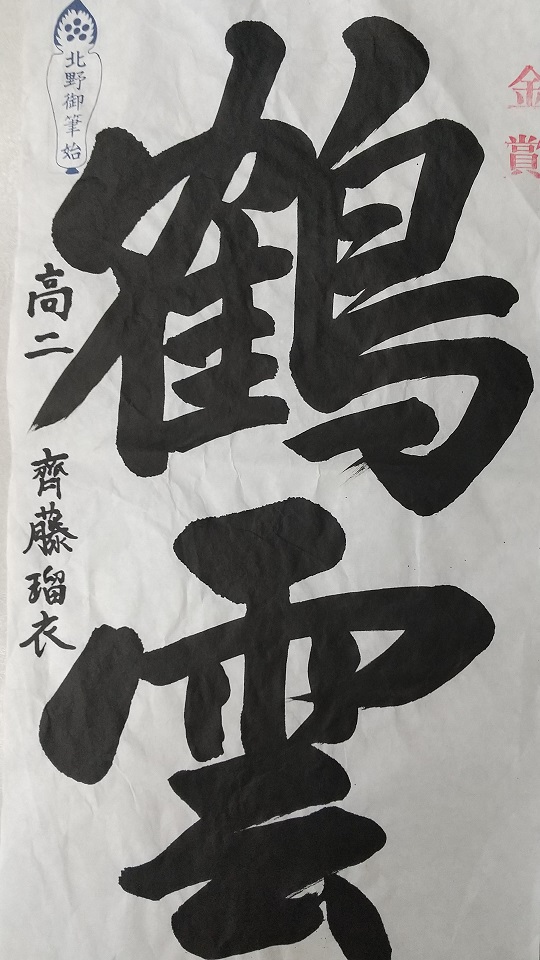 金賞
鶴雲
北野御筆始
高二 齊藤瑠衣